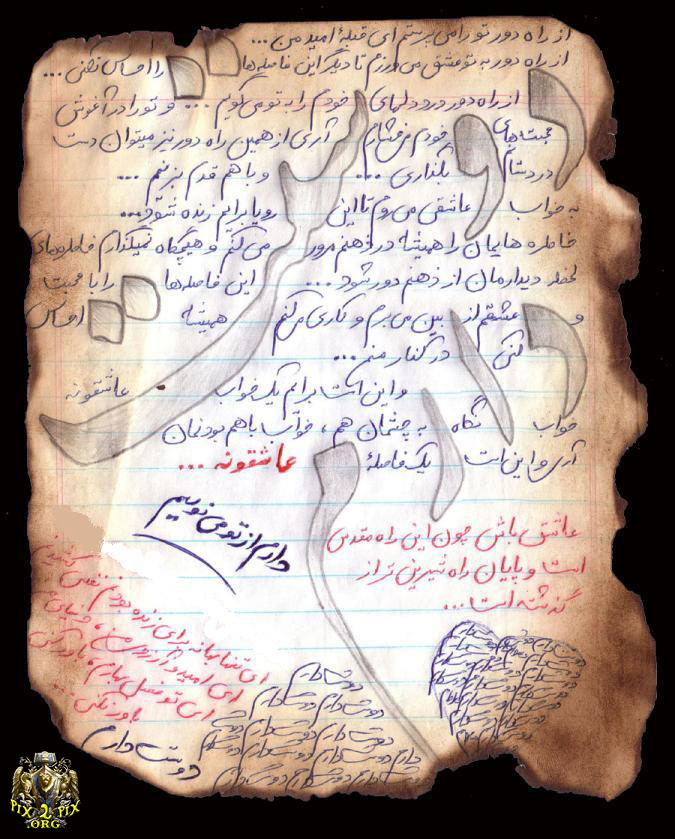 از راه دور تو را می پرستم ای قبلهٔ امید من ...
از راه دور به تو عشق می ورزم تا دیگر این فاصله ها را احساس نکنی ...
از راه دور درد دلهای خودم را به تو می گویم ... و تو را در آغوش
محبت های خودم می فشارم آری از همین راه دور نیز میتوان دست
در دستانم بگذاری ... و با هم قدم بزنیم ...
به خواب عاشقی می روم تا این رویا برایم زنده شود ...
خاطره هایمان را همیشه در ذهنم مرور می کنم و هیچگاه نمیگذارم خاطره های
لحظه دیدارمان از ذهنم دور شود ... این فاصله ها را با محبت
و عشقم از بین می برم و کاری میکنم همیشه احساس
کنی در کنار منم ...
و این است برایم یک خواب عاشقونه
خواب نگاه به چشمان هم ، خواب با هم بودنمان
آری و این است یک فاصلهٔ عاشقونه ...
دارم از تو می نویسم
عاشق باش چون این راه مقدس
است و پایان راه شیرین تر از
گذشته است ...
ای تنها بهانه برای زنده بودنم نفس کشیدنم
ای امید و آرزوی من ، دنیای من
ای تو فصل بهارم ، باور کنی
باور نکنی ...
دوست دارم
دوست دارم